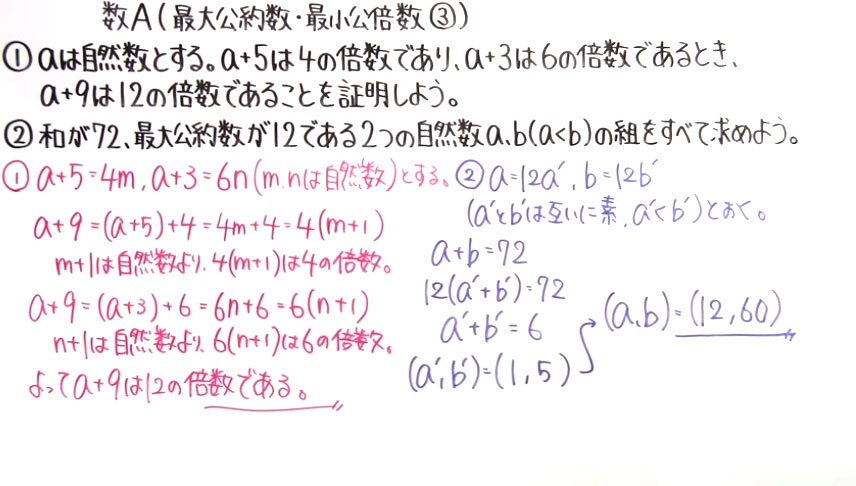 数A(最大公約数・最小公倍数③)
①aは自然数とする。a+5は4の倍数であり、a+3は6の倍数であるとき、
a+9は12の倍数であることを証明しよう。
②和が72、最大公約数が12である2つの自然数a、b(a<b)の組をすべて求めよう。
①a+5=4m,a+3=6n(m,nは自然数)とする。
a+9=(a+5)+4=4m+4=4(m+1)
m+1は自然数より、4(m+1)は4の倍数。
a+9=(a+3)+6=6n+6=6(n+1)
n+1は自然数より、6(n+1)は6の倍数。
よってa+9は12の倍数である。
②a=12a′,b=12b′
(a′とb′は互いに素,a′<b′)とおく。
a+b=72
12(a′+b′)=72
a′+b′=6
(a′,b′)=(1,5)
(a,b)=(12,60)